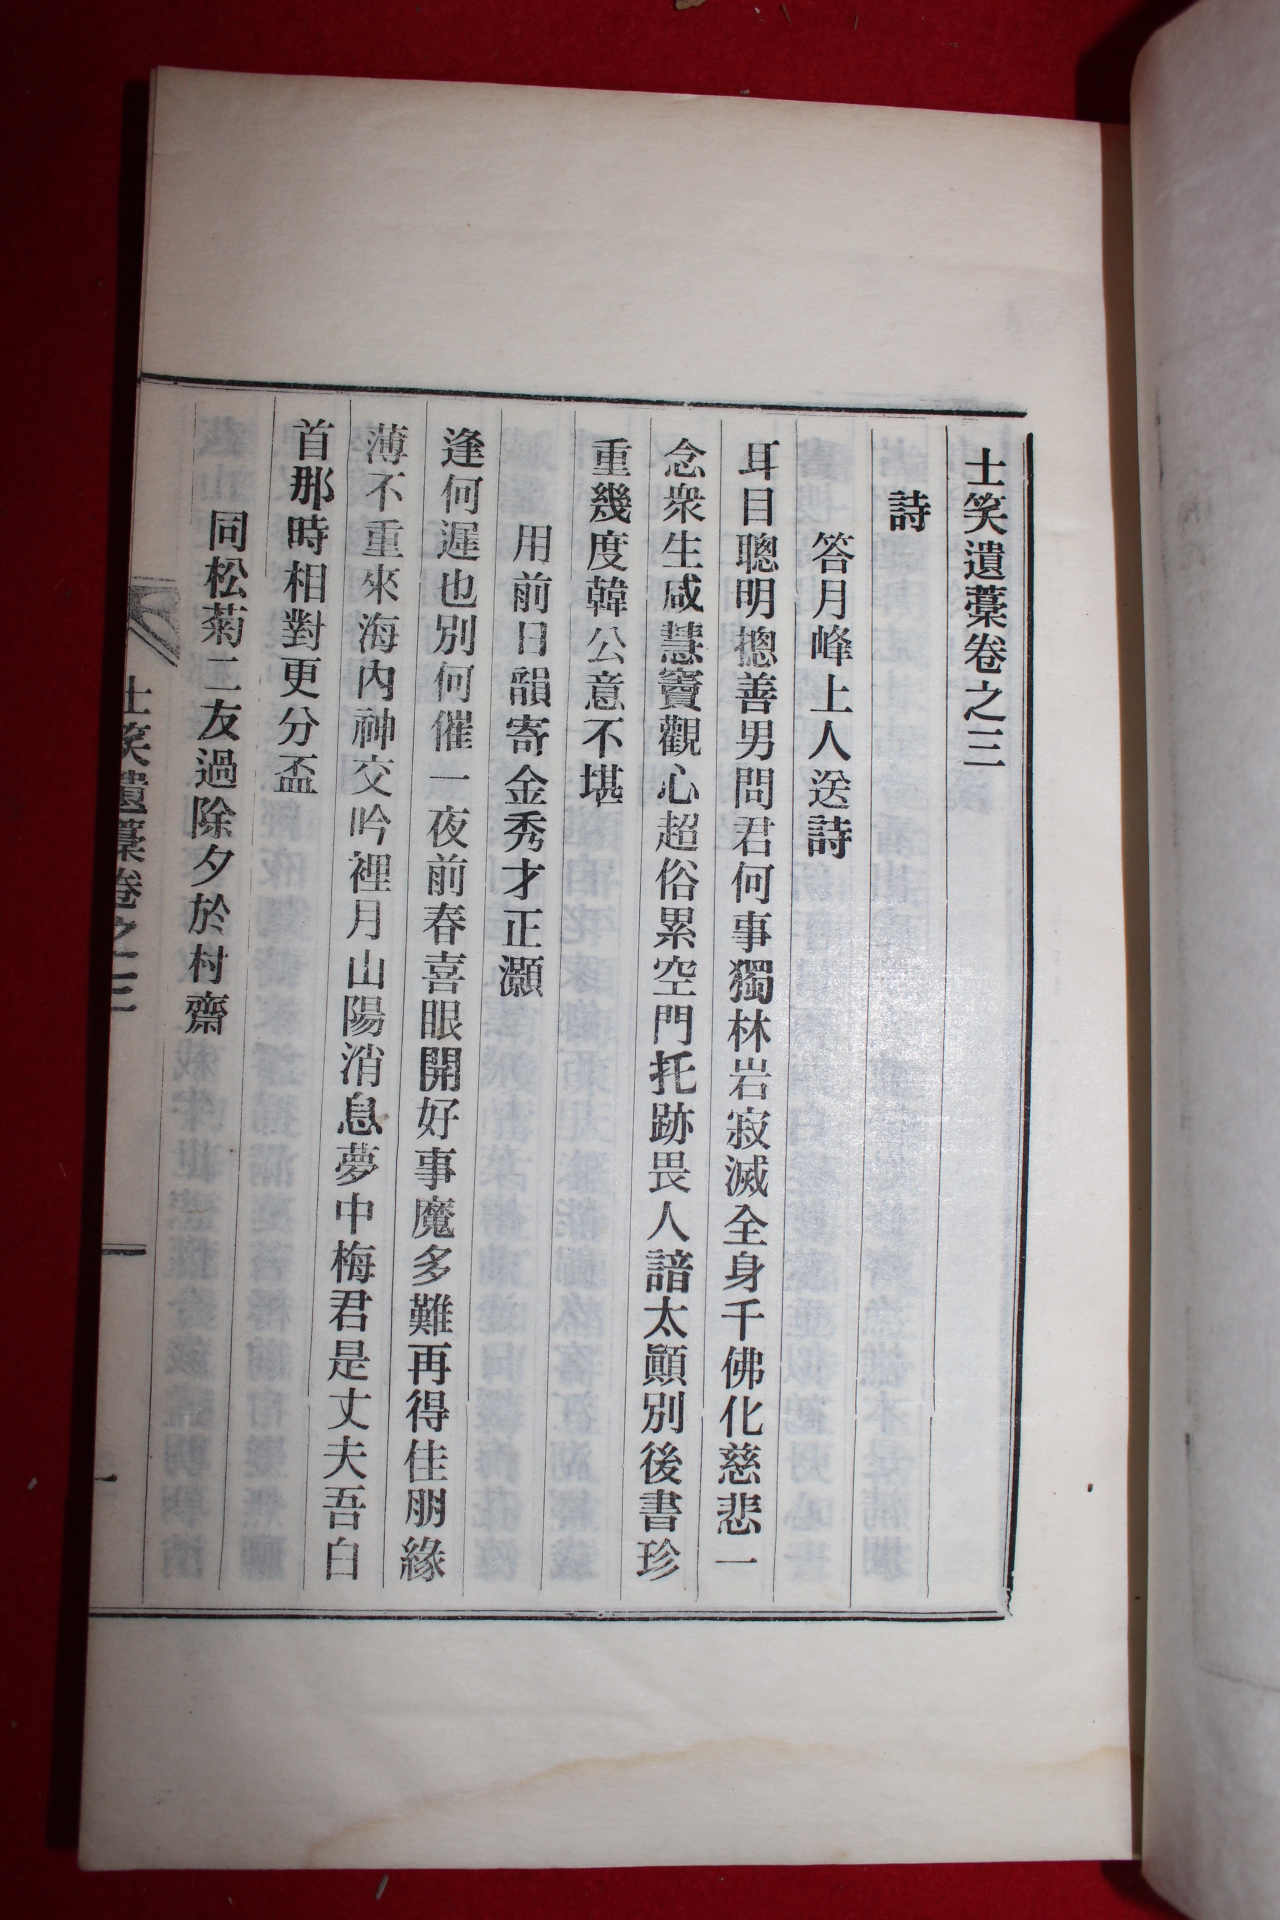 士笑遺藁卷之三
詩
答月峰上人送詩
耳目聰明摠善男問君何事獨林岩寂滅全身千佛化慈悲一
念衆生咸慧竇觀心超俗累空門托跡畏人諳太顚別後書珍
重幾度韓公意不堪
用前日韻寄金秀才正灝
逢何遲也別何催一夜前春喜眼開好事魔多難再得佳朋緣
薄不重來海內神交吟裡月山陽消息夢中梅君是丈夫吾白
首那時相對更分盃
同松菊二友過除夕於村齋
士笑遺藁卷之三
一